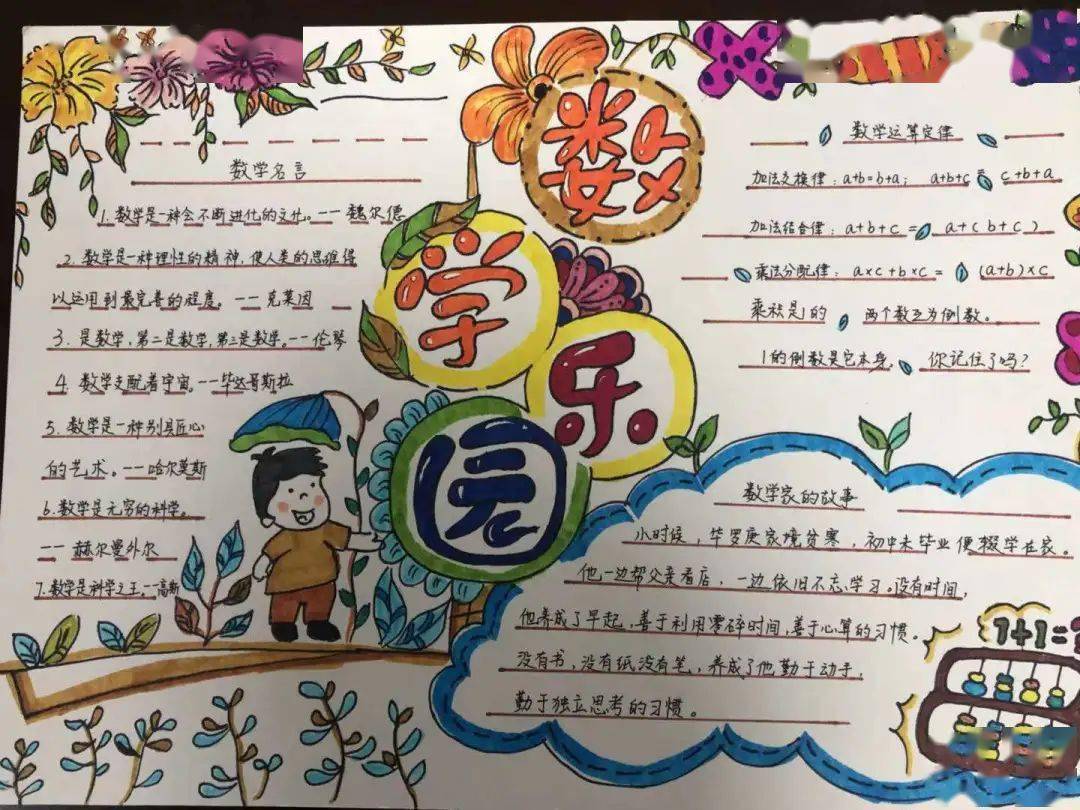 数学乐园
数学名言
1. 数学是一种会不断进化的文化。——魏尔德
2. 数学是一种理性的精神,使人类的思维得
以运用到最完善的程度。——克莱因
3. 是数学,第二是数学,第三是数学。——伦琴
4. 数学支配着宇宙。——毕达哥斯拉
5. 数学是一种别具匠心
的艺术。——哈尔莫斯
6. 数学是无穷的科学。
——赫尔曼外尔
7. 数学是科学之王。—高斯
数学运算定律
加法交换律: a+b=b+a; a+b+c = c+b+a
加法结合律: a+b+c = a+( b+c )
乘法分配律: a×c+b×c= (a+b)×c
乘积是1的 两个数互为倒数。
1的倒数是它本身。 你记住了吗?
数学家的故事
小时候,华罗庚家境贫寒,初中未毕业便辍学在家。
他一边帮父亲看店,一边依旧不忘学习。没有时间,
他养成了早起,善于利用零碎时间,善于心算的习惯。
没有书,没有纸没有笔,养成了他勤于动手,
勤于独立思考的习惯。
1+1=?